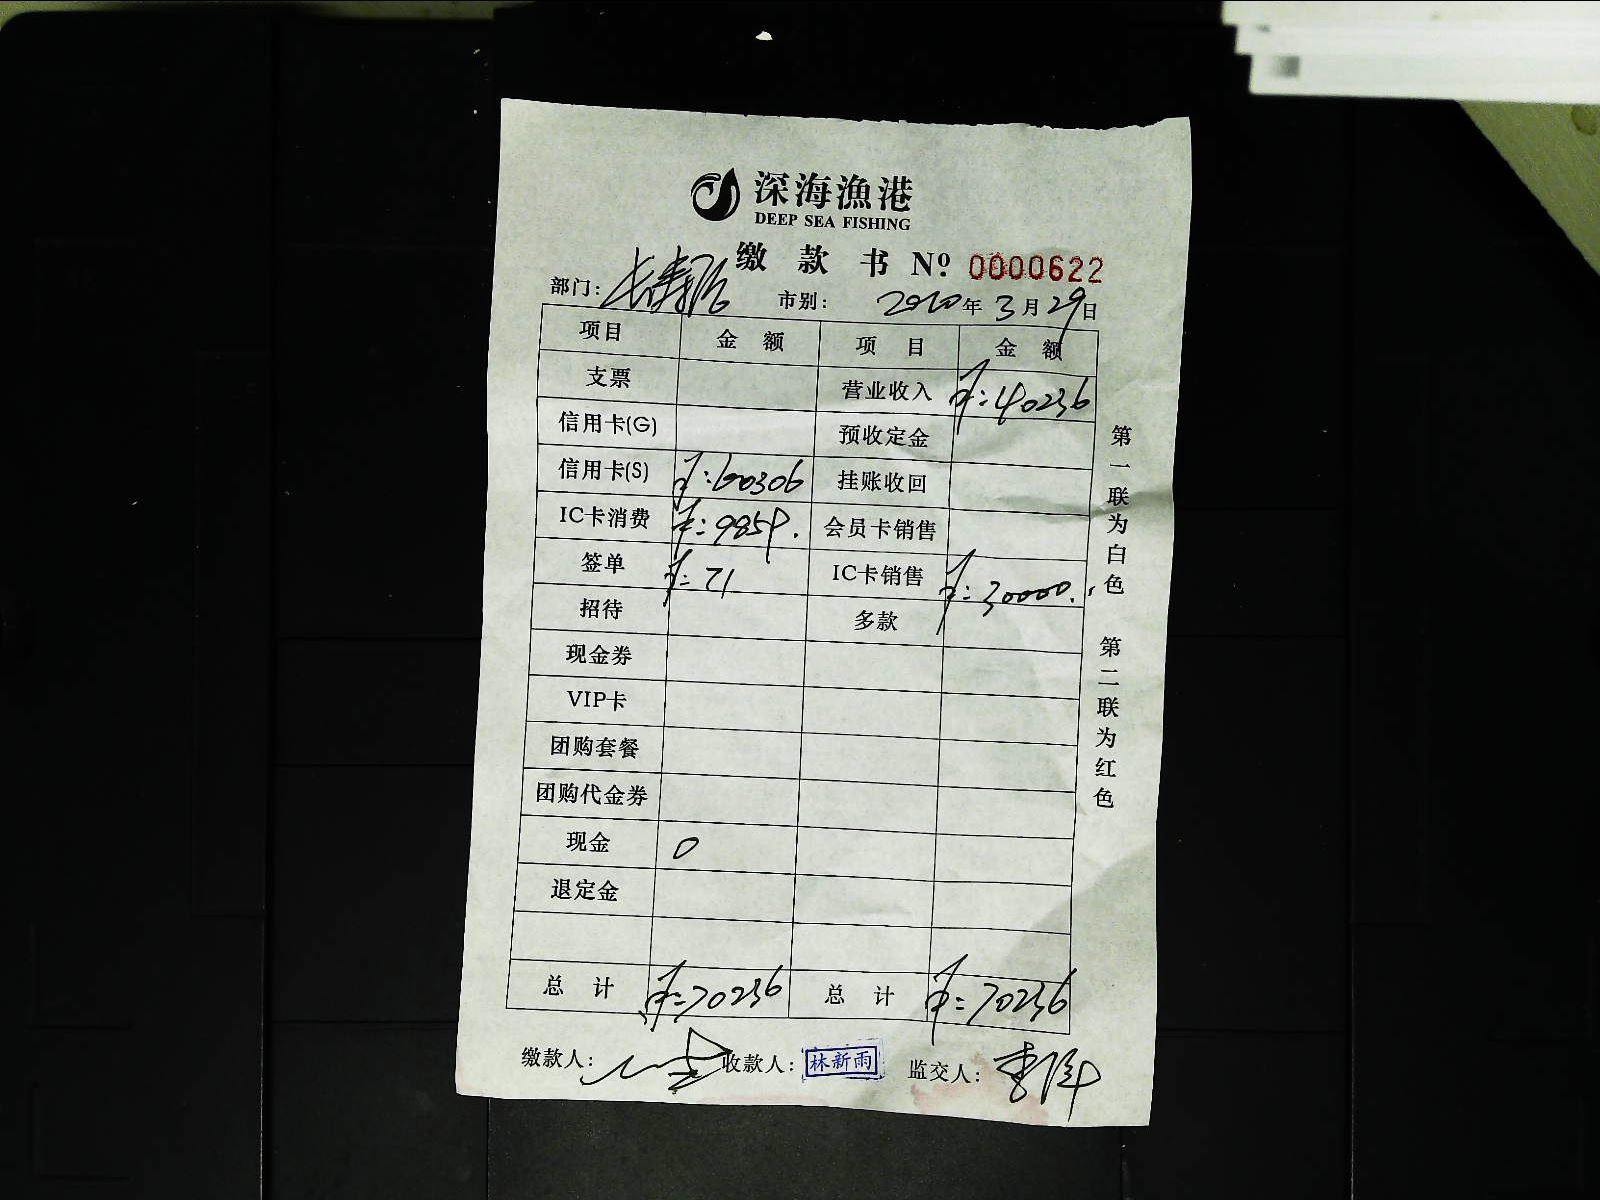 深海漁港
DEEP SEA FISHING
缴款书 Nº 0000622
部门: 长寿路 市别: 2010年3月29日
项目 金额 项目 金额
支票 营业收入 ¥:40236
信用卡(G) 预收定金
信用卡(S) ¥:60306 挂账收回
IC卡消费 ¥:9859. 会员卡销售
签单 ¥:71 IC卡销售 ¥:30000.
招待 多款
现金券
VIP卡
团购套餐
团购代金券
现金 0
退定金
总计 ¥:70236 总计 ¥:70236
缴款人: 收款人: 林新雨 监交人:
第一联为白色 第二联为红色